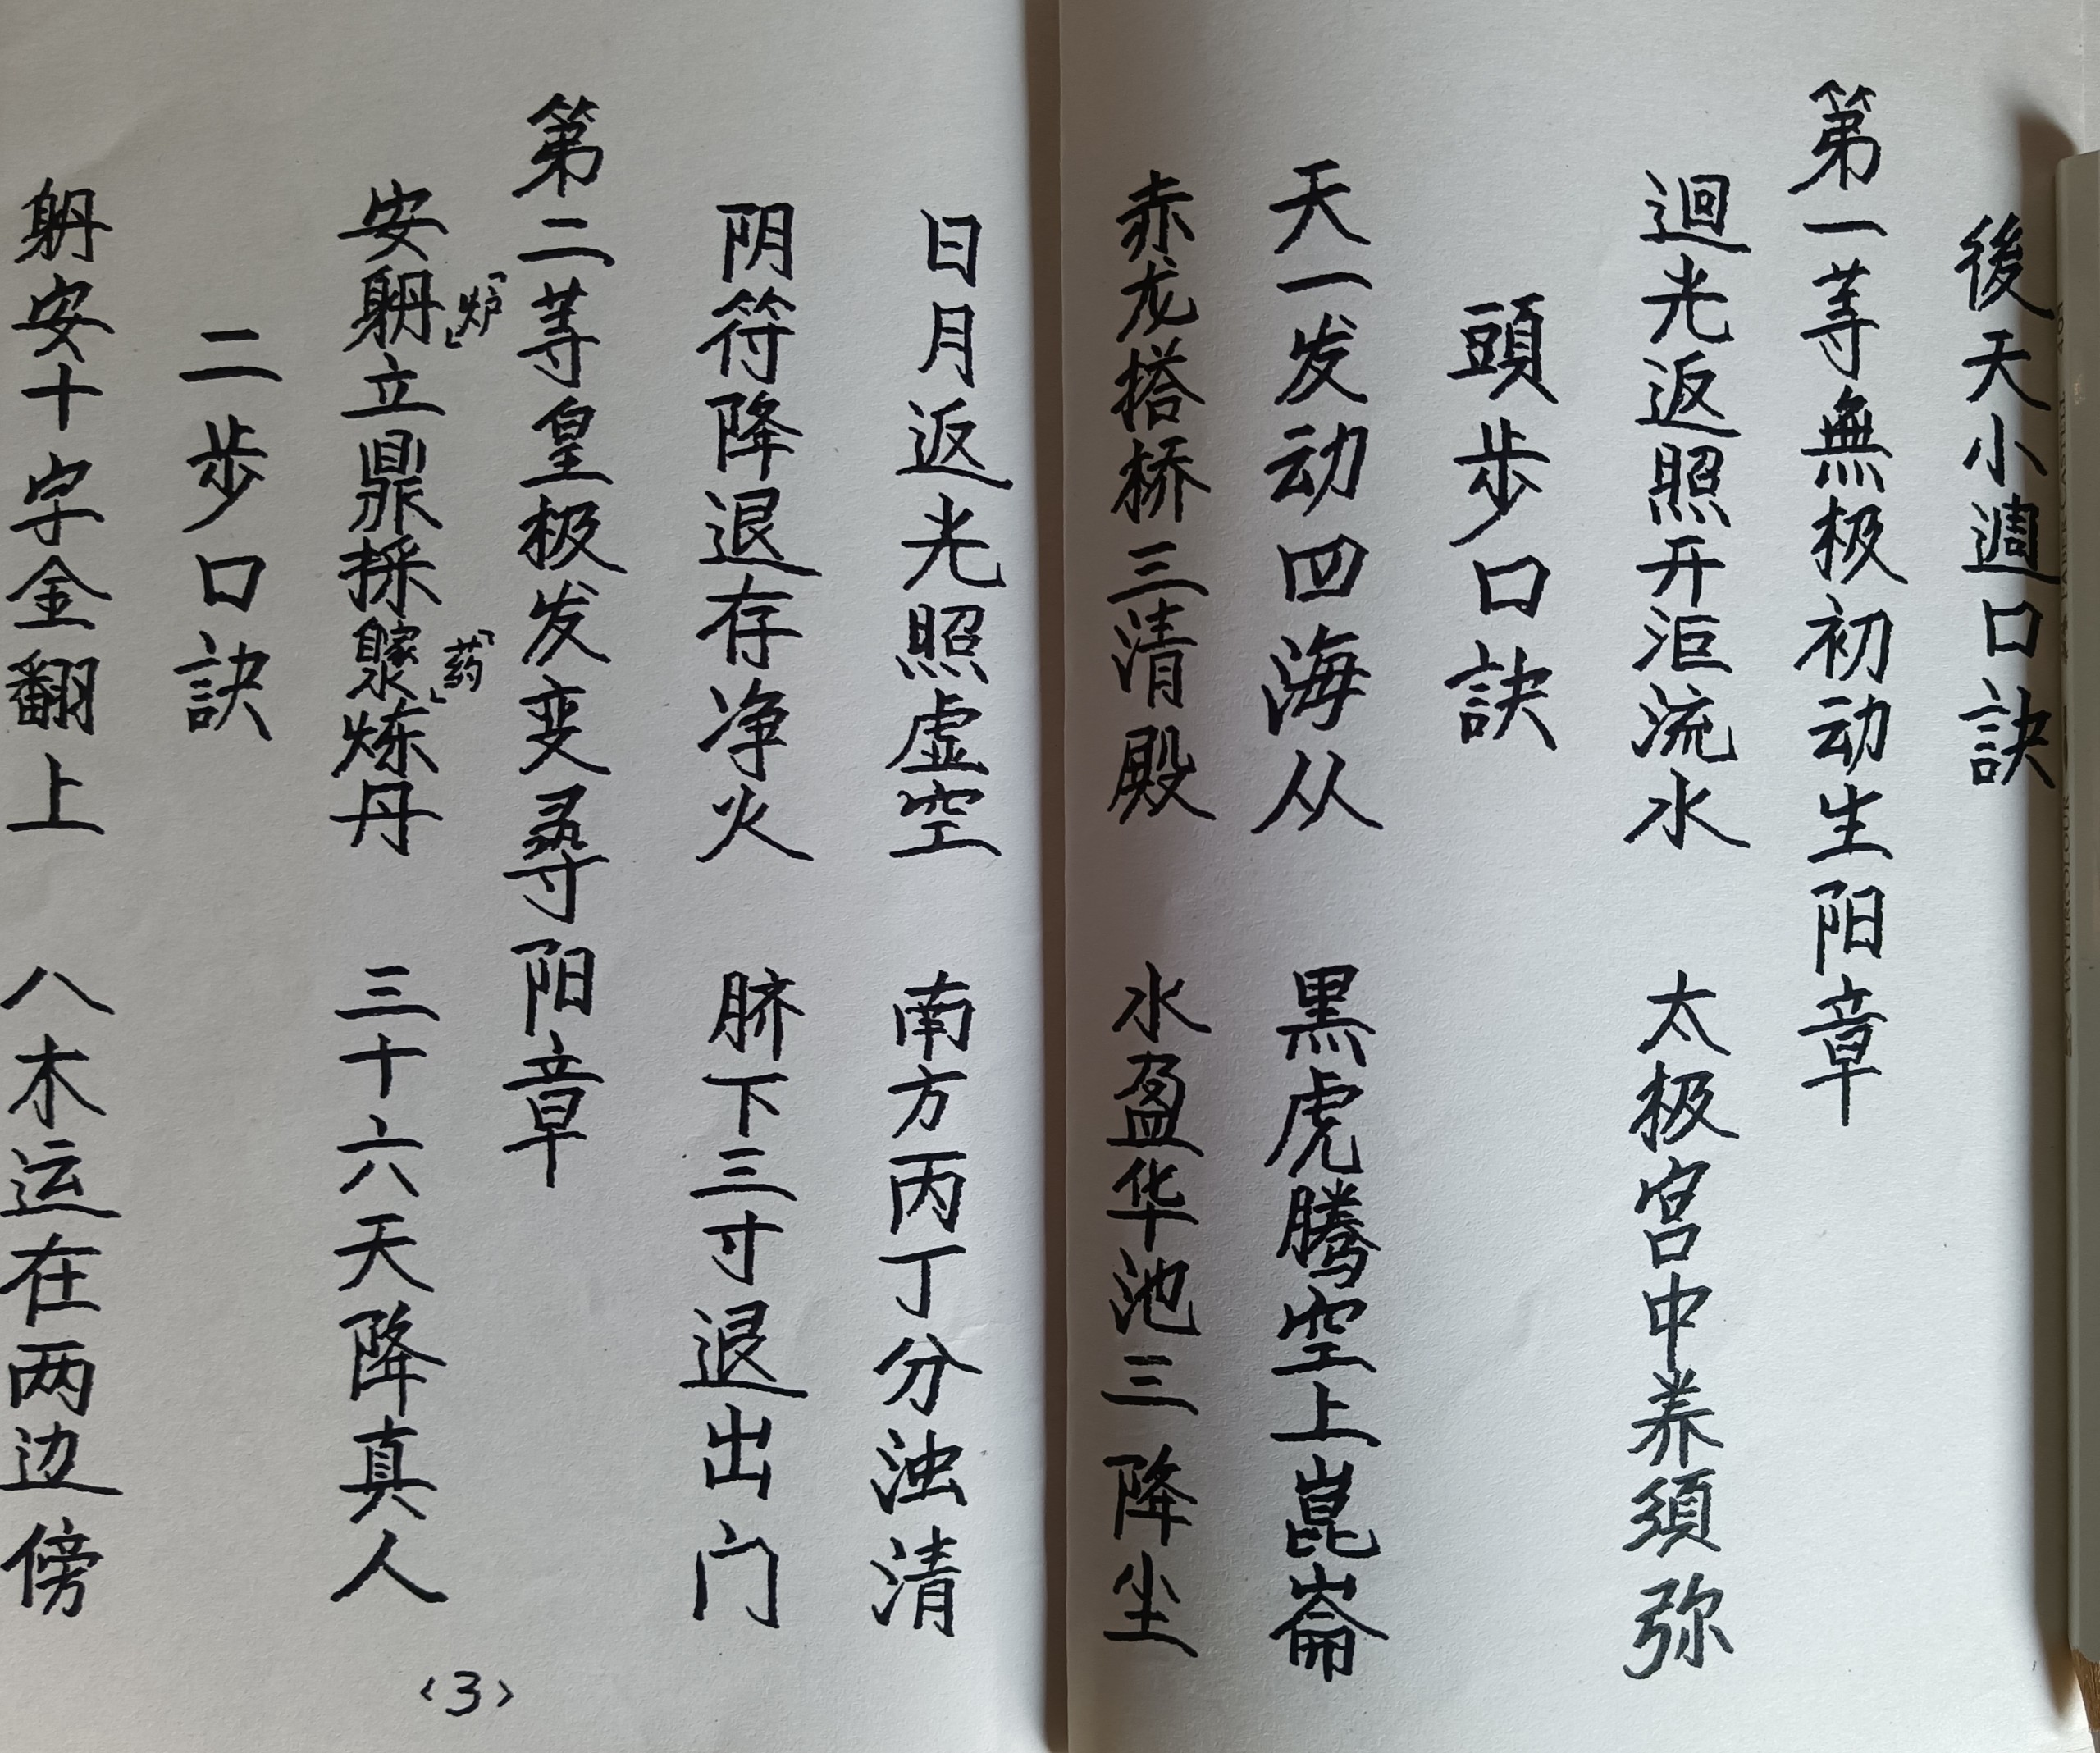 後天小週口訣
第一等無极初动生阳章
迴光返照开洰流水 太极宫中养須弥
頭步口訣
天一发动四海从 黑虎腾空上崑崙
赤龙搭桥三清殿 水盈华池三降尘
日月返光照虚空 南方丙丁分浊清
阴符降退存净火 脐下三寸退出门
第二等皇极发变尋阳章
安立鼎採炼丹 三十六天降真人
「炉」
「药」
二步口訣
安十字金翻上 八木运在两边傍
<3>